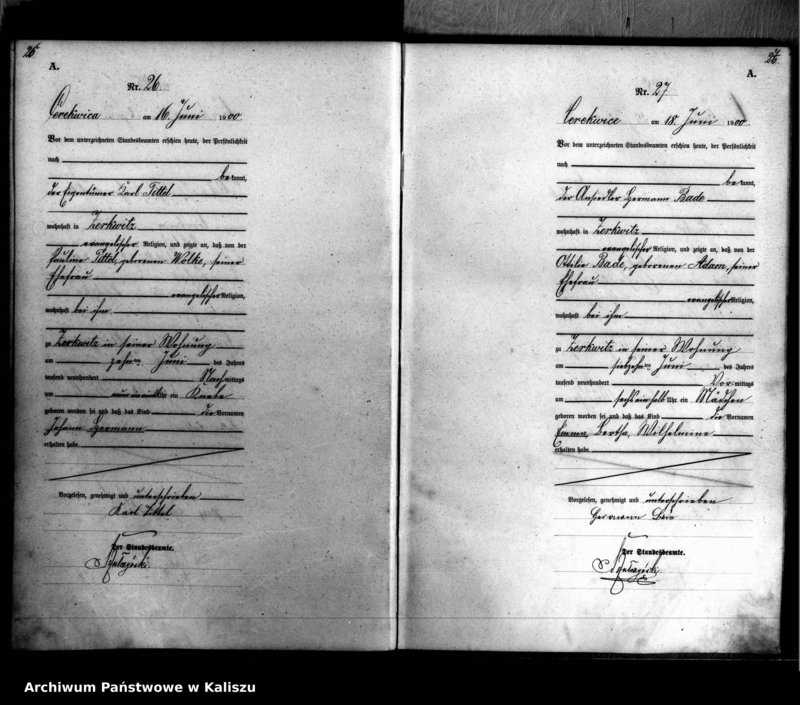 26
A.
Nr. 26
Cerekwica am 16. Juni 1900
Vor dem unterzeichneten Standesbeamten erschien heute, der Persönlichkeit
nach
bekannt,
der Eigentümer Karl Tittel
wohnhaft in Zerkwitz
evangelischer Religion, und zeigte an, daß von der
Pauline Tittel, geborenen Wolke, seiner
Ehefrau
evangelischer Religion,
wohnhaft bei ihm
zu Zerkwitz in seiner Wohnung
am zehn ten Juni des Jahres
tausend neunhundert Nachmittags
um neun Uhr ein Knabe
geboren worden sei und daß das Kind die Vornamen
Johann Hermann
erhalten habe.
Vorgelesen, genehmigt und unterschrieben
Karl Tittel
Der Standesbeamte.
26
A.
Nr. 27
Cerekwice am 18. Juni 1900
Vor dem unterzeichneten Standesbeamten erschien heute, der Persönlichkeit
nach
bekannt,
der Ansiedler Hermann Bade
wohnhaft in Zerkwitz
evangelischer Religion, und zeigte an, daß von der
Ottilie Bade, geborenen Adam, seiner
Ehefrau
evangelischer Religion,
wohnhaft bei ihm
zu Zerkwitz in seiner Wohnung
am siebzehn ten Juni des Jahres
tausend neunhundert Vormittags
um sechs ein halb Uhr ein Mädchen
geboren worden sei und daß das Kind die Vornamen
Emma, Bertha, Wilhelmine
erhalten habe.
Vorgelesen, genehmigt und unterschrieben
Hermann
Der Standesbeamte.
Archiwum Państwowe w Kaliszu